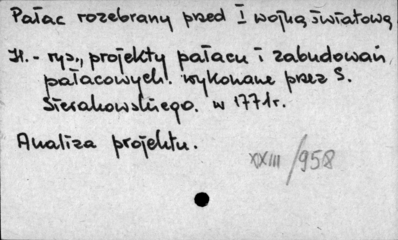 Pałac rozebrany przed I wojną światową
Il. - rys., projekty pałacu i zabudowań
pałacowych. wykonane przez S.
Sierakowskiego. w 1771r.
Analiza projektu.
XXIII/958